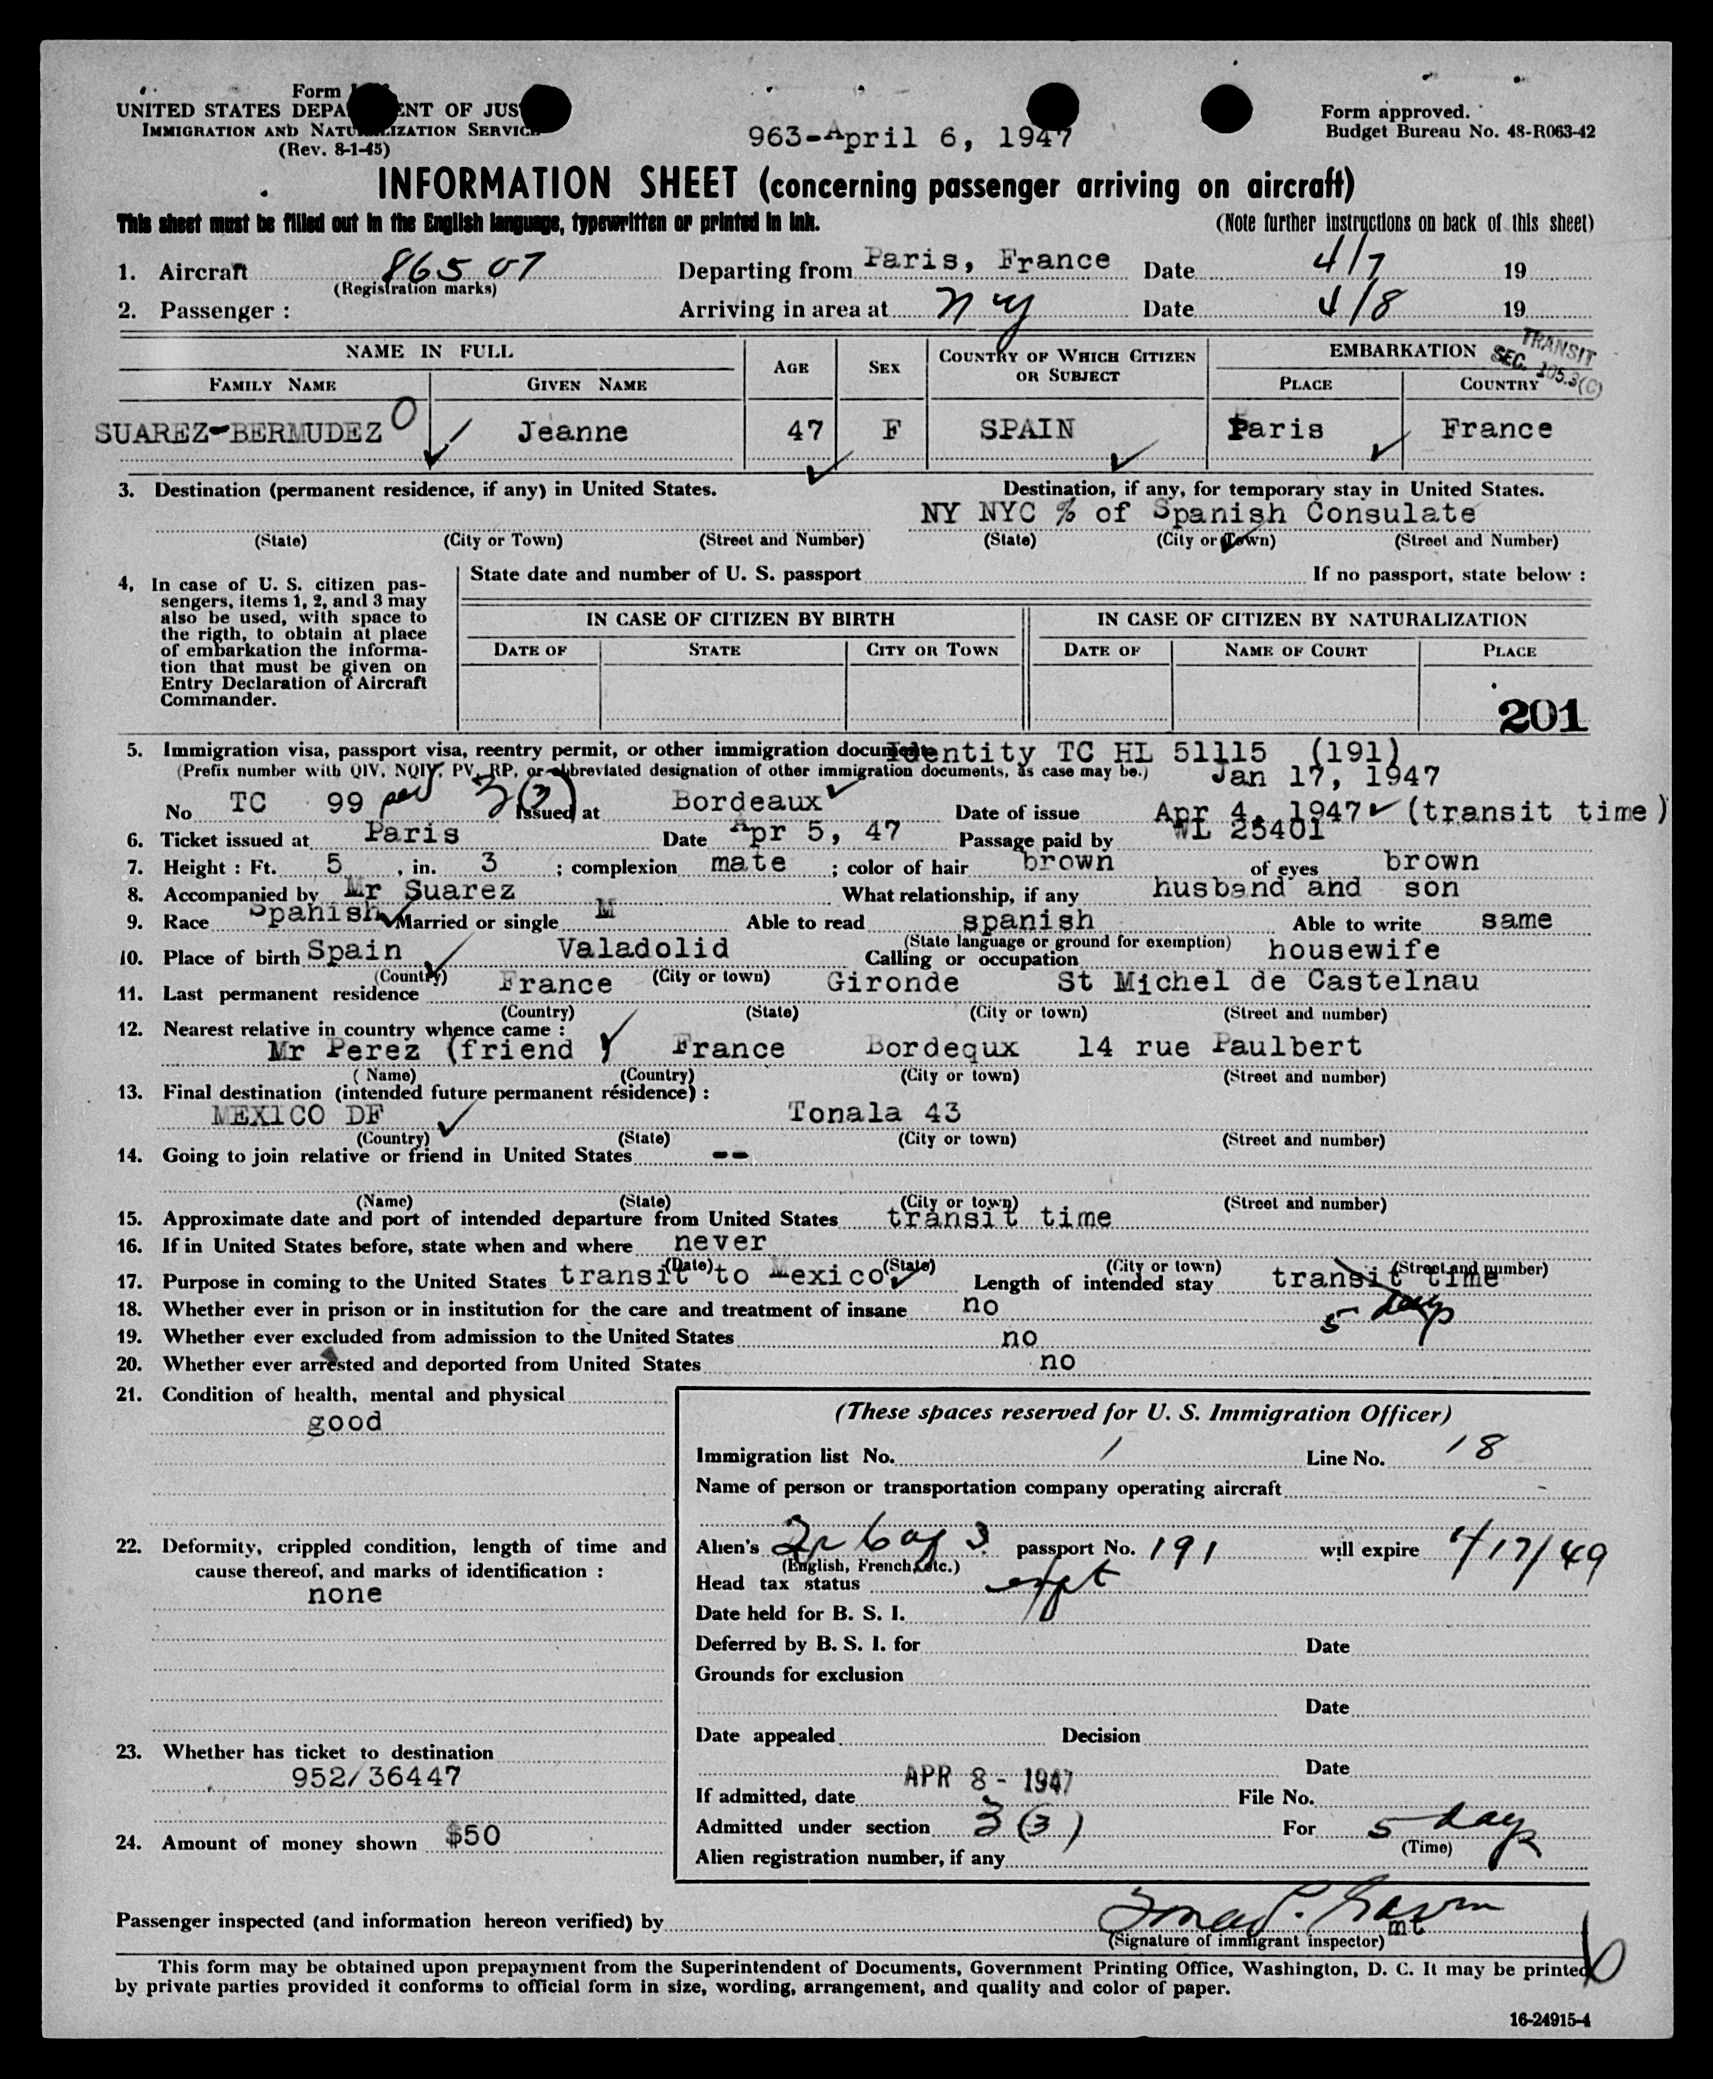 Form
UNITED STATES DEPA ENT OF JUS
IMMIGRATION AND NATURALIZATION SERVICE
(Rev. 8-1-45)
963-April 6, 1947
Form approved.
Budget Bureau No. 48-R063-42
INFORMATION SHEET (concerning passenger arriving on aircraft)
This sheet must be filled out in the English language, typewritten or printed in ink. (Note further instructions on back of this sheet)
1. Aircraft 86507 Departing from Paris, France Date 4/7 19
(Registration marks)
2. Passenger : Arriving in area at NY Date 4/8 19
TRANSIT
SEC. 105.3(C)
NAME IN FULL AGE SEX COUNTRY OF WHICH CITIZEN OR SUBJECT EMBARKATION
FAMILY NAME GIVEN NAME PLACE COUNTRY
SUAREZ-BERMUDEZ Jeanne 47 F SPAIN Paris France
3. Destination (permanent residence, if any) in United States. Destination, if any, for temporary stay in United States.
NY NYC % of Spanish Consulate
(State) (City or Town) (Street and Number) (State) (City or Town) (Street and Number)
4. In case of U. S. citizen pas-
sengers, items 1, 2, and 3 may
also be used, with space to
the rigth, to obtain at place
of embarkation the informa-
tion that must be given on
Entry Declaration of Aircraft
Commander.
State date and number of U. S. passport If no passport, state below :
IN CASE OF CITIZEN BY BIRTH IN CASE OF CITIZEN BY NATURALIZATION
DATE OF STATE CITY OR TOWN DATE OF NAME OF COURT PLACE
201
5. Immigration visa, passport visa, reentry permit, or other immigration document Identity TC HL 51115 (191)
(Prefix number with QIV, NQIV, PV, RP, or abbreviated designation of other immigration documents, as case may be.) Jan 17, 1947
No TC 99 3(3) Issued at Bordeaux Date of issue Apr 4, 1947 (transit time)
6. Ticket issued at Paris Date Apr 5, 47 Passage paid by WL 25401
7. Height : Ft. 5 , in. 3 ; complexion mate ; color of hair brown of eyes brown
8. Accompanied by Mr Suarez What relationship, if any husband and son
9. Race Spanish Married or single M Able to read spanish Able to write same
(State language or ground for exemption)
10. Place of birth Spain Valadolid Calling or occupation housewife
(Country) (City or town)
11. Last permanent residence France Gironde St Michel de Castelnau
(Country) (State) (City or town) (Street and number)
12. Nearest relative in country whence came :
Mr Perez (friend ) France Bordequx 14 rue Paulbert
( Name) (Country) (City or town) (Street and number)
13. Final destination (intended future permanent résidence) :
MEXICO DF Tonala 43
(Country) (State) (City or town) (Street and number)
14. Going to join relative or friend in United States --
(Name) (State) (City or town) (Street and number)
15. Approximate date and port of intended departure from United States transit time
16. If in United States before, state when and where never
(Date) (State) (City or town) (Street and number)
17. Purpose in coming to the United States transit to Mexico Length of intended stay transit time
5 days
18. Whether ever in prison or in institution for the care and treatment of insane no
19. Whether ever excluded from admission to the United States no
20. Whether ever arrested and deported from United States no
21. Condition of health, mental and physical
good
22. Deformity, crippled condition, length of time and
cause thereof, and marks of identification :
none
23. Whether has ticket to destination
952/36447
24. Amount of money shown $50
(These spaces reserved for U. S. Immigration Officer)
Immigration list No. 1 Line No. 18
Name of person or transportation company operating aircraft
Alien's passport No. 191 will expire 1/17/49
(English, French, etc.)
Head tax status
Date held for B. S. I.
Deferred by B. S. I. for Date
Grounds for exclusion
Date
Date appealed Decision
Date
If admitted, date APR 8 - 1947 File No.
Admitted under section 3(3) For 5 days
(Time)
Alien registration number, if any
Passenger inspected (and information hereon verified) by
mt
(Signature of immigrant inspector)
This form may be obtained upon prepayment from the Superintendent of Documents, Government Printing Office, Washington, D. C. It may be printed
by private parties provided it conforms to official form in size, wording, arrangement, and quality and color of paper.
16-24915-4